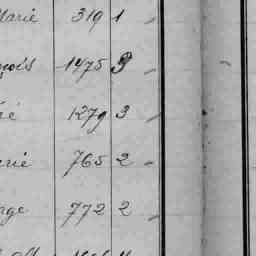 Marie 319 1
çois 1475 3
é 1279 3
rie 765 2
rge 772 2